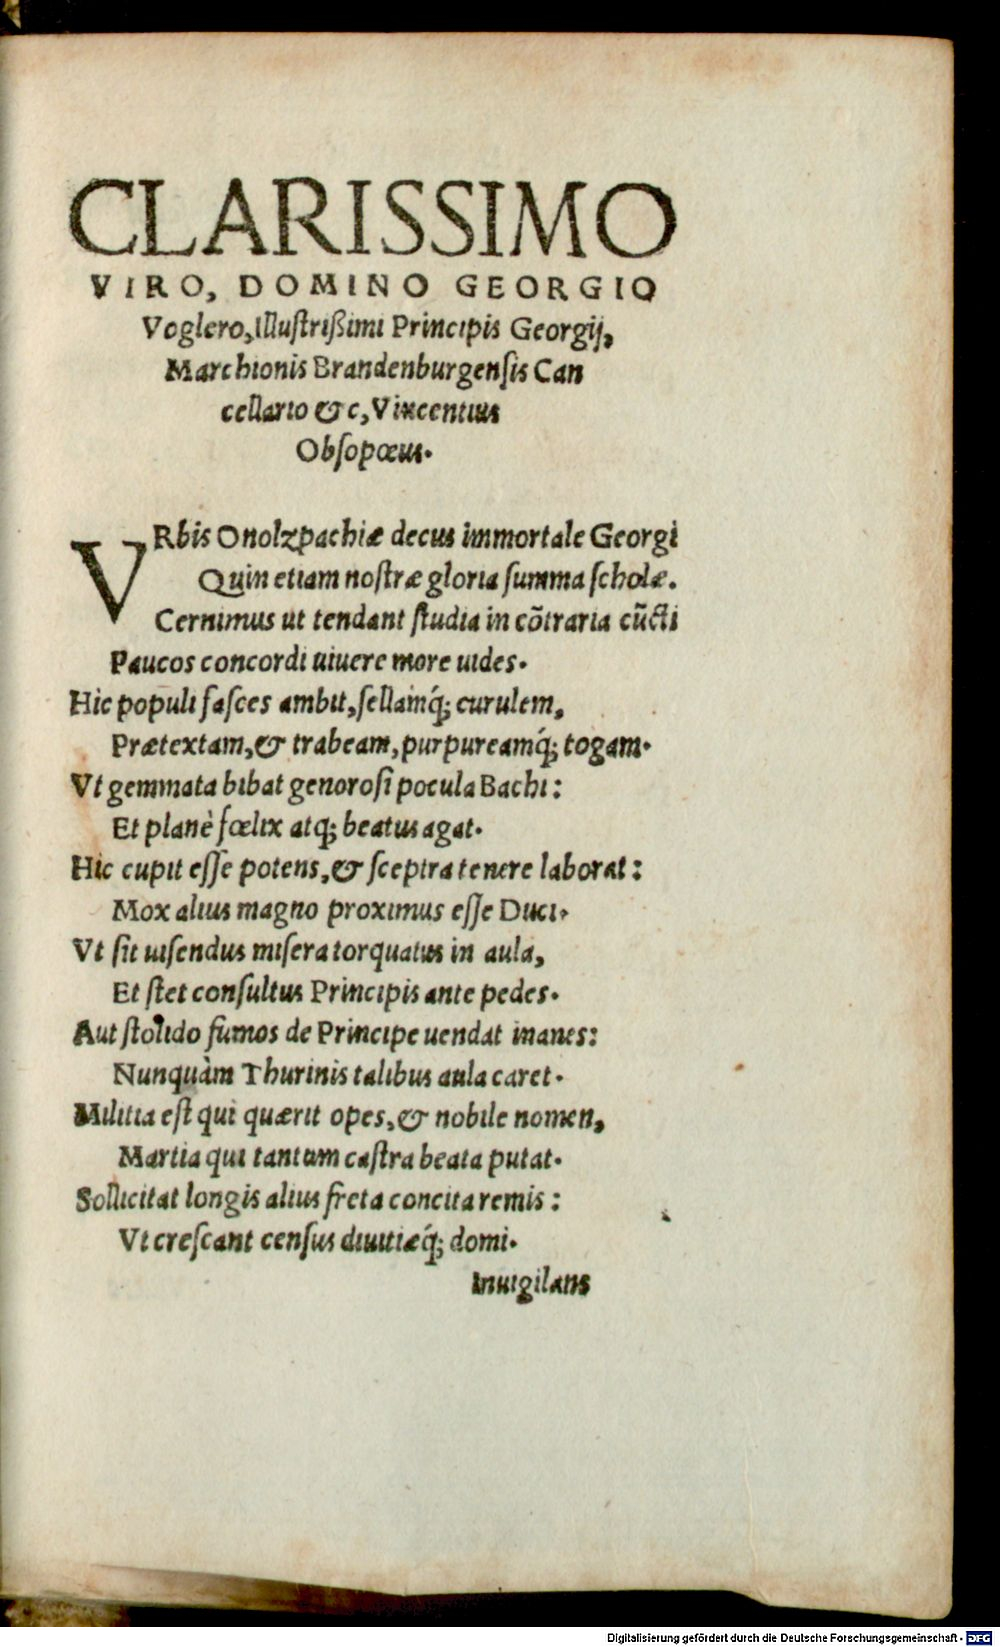 CLARISSIMO
VIRO, DOMINO GEORGIO
Voglero, Illuſtrißimi Principis Georgij,
Marchionis Brandenburgenſis Can
cellario &c, Vincentius
Obſopœus.
VRbis Onolzpachiæ decus immortale Georgi
Quin etiam noſtræ gloria ſumma ſcholæ.
Cernimus ut tendant ſtudia in cõtraria cũcti
Paucos concordi uiuere more uides.
Hic populi faſces ambit, ſellamq́; curulem,
Prætextam, & trabeam, purpureamq́; togam.
Vt gemmata bibat genoroſi pocula Bachi:
Et planè fœlix atq; beatus agat.
Hic cupit eſſe potens, & ſceptra tenere laborat:
Mox alius magno proximus eſſe Duci.
Vt ſit uiſendus miſera torquatus in aula,
Et ſtet conſultus Principis ante pedes.
Aut ſtolido fumos de Principe uendat inanes:
Nunquàm Thurinis talibus aula caret.
Militia eſt qui quærit opes, & nobile nomen,
Martia qui tantum caſtra beata putat.
Sollicitat longis alius freta concita remis:
Vt creſcant cenſus diuitiæq́; domi.
Inuigilans
Digitalisierung gefördert durch die Deutsche Forschungsgemeinschaft - DFG